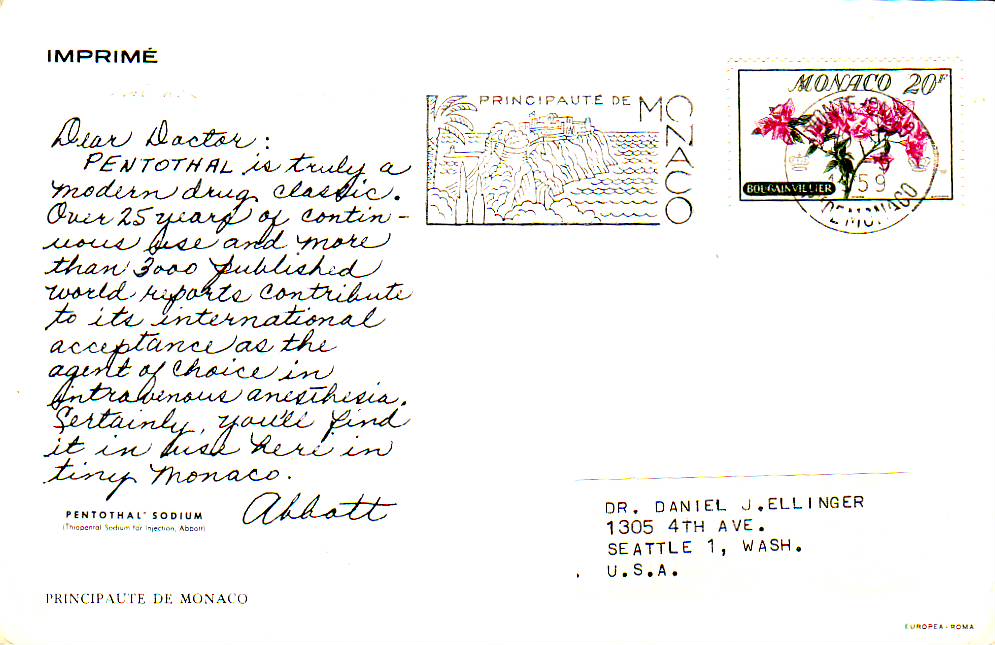 IMPRIMÉ
PRINCIPAUTÉ DE MONACO
MONACO 20F
BOUGAINVILLIER
59
DE MONACO
Dear Doctor:
PENTOTHAL is truly a
modern drug classic.
Over 25 years of contin-
uous use and more
than 3000 published
world reports contribute
to its international
acceptance as the
agent of choice in
intravenous anesthesia.
Certainly, you'll find
it in use here in
tiny Monaco.
Abbott
PENTOTHAL® SODIUM
(Thiopental Sodium for Injection, Abbott)
DR. DANIEL J.ELLINGER
1305 4TH AVE.
SEATTLE 1, WASH.
U.S.A.
PRINCIPAUTE DE MONACO
EUROPEA-ROMA